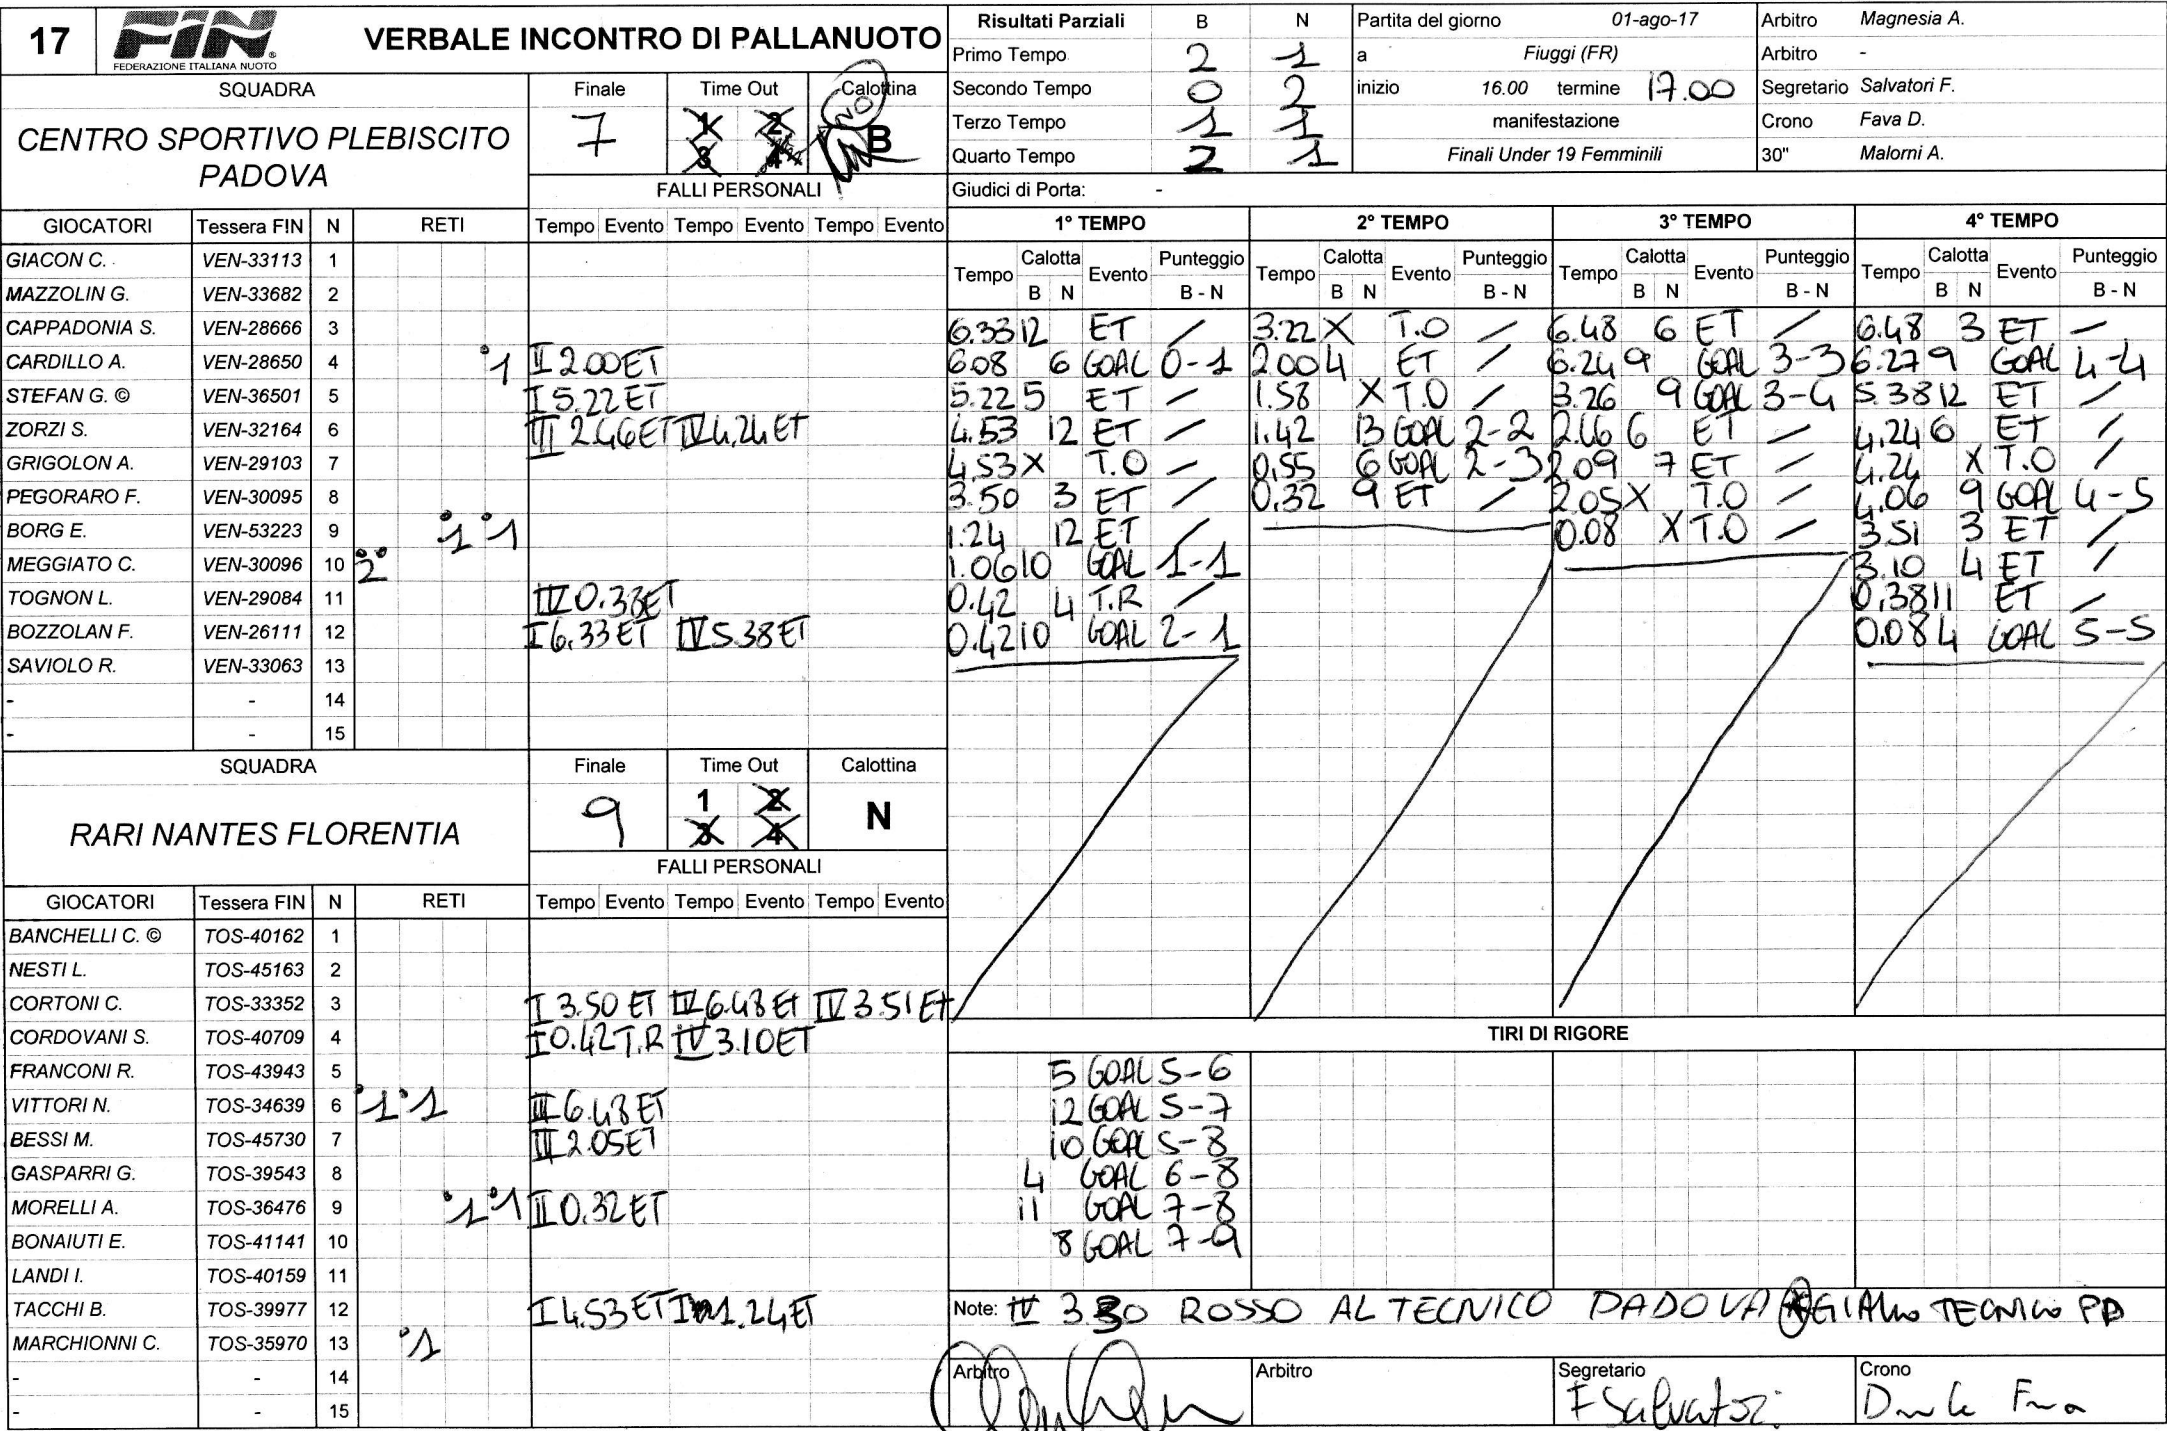 17
FIN
FEDERAZIONE ITALIANA NUOTO
VERBALE INCONTRO DI PALLANUOTO
Risultati Parziali B N
Primo Tempo 2 1
Secondo Tempo 0 2
Terzo Tempo 1 1
Quarto Tempo 2 1
Partita del giorno 01-ago-17
a Fiuggi (FR)
inizio 16.00 termine 17.00
manifestazione
Finali Under 19 Femminili
Arbitro Magnesia A.
Arbitro -
Segretario Salvatori F.
Crono Fava D.
30" Malorni A.
Giudici di Porta: -
SQUADRA Finale Time Out Calottina
CENTRO SPORTIVO PLEBISCITO
PADOVA
7 1 2 3 4 B NO
FALLI PERSONALI
GIOCATORI Tessera FIN N RETI Tempo Evento Tempo Evento Tempo Evento
GIACON C. VEN-33113 1
MAZZOLIN G. VEN-33682 2
CAPPADONIA S. VEN-28666 3
CARDILLO A. VEN-28650 4 1 II 2.00 ET
STEFAN G. © VEN-36501 5 I 5.22 ET
ZORZI S. VEN-32164 6 III 2.46 ET IV 4.24 ET
GRIGOLON A. VEN-29103 7
PEGORARO F. VEN-30095 8
BORG E. VEN-53223 9 1 1
MEGGIATO C. VEN-30096 10 2
TOGNON L. VEN-29084 11 IV 0.38 ET
BOZZOLAN F. VEN-26111 12 I 6.33 ET IV 5.38 ET
SAVIOLO R. VEN-33063 13
- - 14
- - 15
SQUADRA Finale Time Out Calottina
RARI NANTES FLORENTIA
9 1 2 3 4 N
FALLI PERSONALI
GIOCATORI Tessera FIN N RETI Tempo Evento Tempo Evento Tempo Evento
BANCHELLI C. © TOS-40162 1
NESTI L. TOS-45163 2
CORTONI C. TOS-33352 3 I 3.50 ET IV 6.48 ET IV 3.51 ET
CORDOVANI S. TOS-40709 4 I 0.42 T.R IV 3.10 ET
FRANCONI R. TOS-43943 5
VITTORI N. TOS-34639 6 1 1 III 6.48 ET
BESSI M. TOS-45730 7 III 2.05 ET
GASPARRI G. TOS-39543 8
MORELLI A. TOS-36476 9 1 1 II 0.32 ET
BONAIUTI E. TOS-41141 10
LANDI I. TOS-40159 11
TACCHI B. TOS-39977 12 I 4.53 ET I 1.24 ET
MARCHIONNI C. TOS-35970 13 1
- - 14
- - 15
1° TEMPO
Tempo Calotta B N Evento Punteggio B - N
6.33 12 ET /
6.08 6 GOAL 0-1
5.22 5 ET /
4.53 12 ET /
4.53 X T.O /
3.50 3 ET /
1.24 12 ET /
1.06 10 GOAL 1-1
0.42 4 T.R /
0.42 10 GOAL 2-1
2° TEMPO
Tempo Calotta B N Evento Punteggio B - N
3.22 X T.O /
2.00 4 ET /
1.58 X T.O /
1.42 13 GOAL 2-2
0.55 6 GOAL 2-3
0.32 9 ET /
3° TEMPO
Tempo Calotta B N Evento Punteggio B - N
6.48 6 ET /
6.24 9 GOAL 3-3
3.26 9 GOAL 3-4
2.46 6 ET /
2.09 7 ET /
2.05 X T.O /
0.08 X T.O /
4° TEMPO
Tempo Calotta B N Evento Punteggio B - N
6.48 3 ET /
6.27 9 GOAL 4-4
5.38 12 ET /
4.24 6 ET /
4.24 X T.O /
4.06 9 GOAL 4-5
3.51 3 ET /
3.10 4 ET /
0.38 11 ET /
0.08 4 GOAL 5-5
TIRI DI RIGORE
5 GOAL 5-6
12 GOAL 5-7
10 GOAL 5-8
4 GOAL 6-8
11 GOAL 7-8
8 GOAL 7-9
Note: IV 3.30 ROSSO AL TECNICO PADOVA GIALLO TECNICO PD
Arbitro
Arbitro
Segretario
F Salvatori
Crono